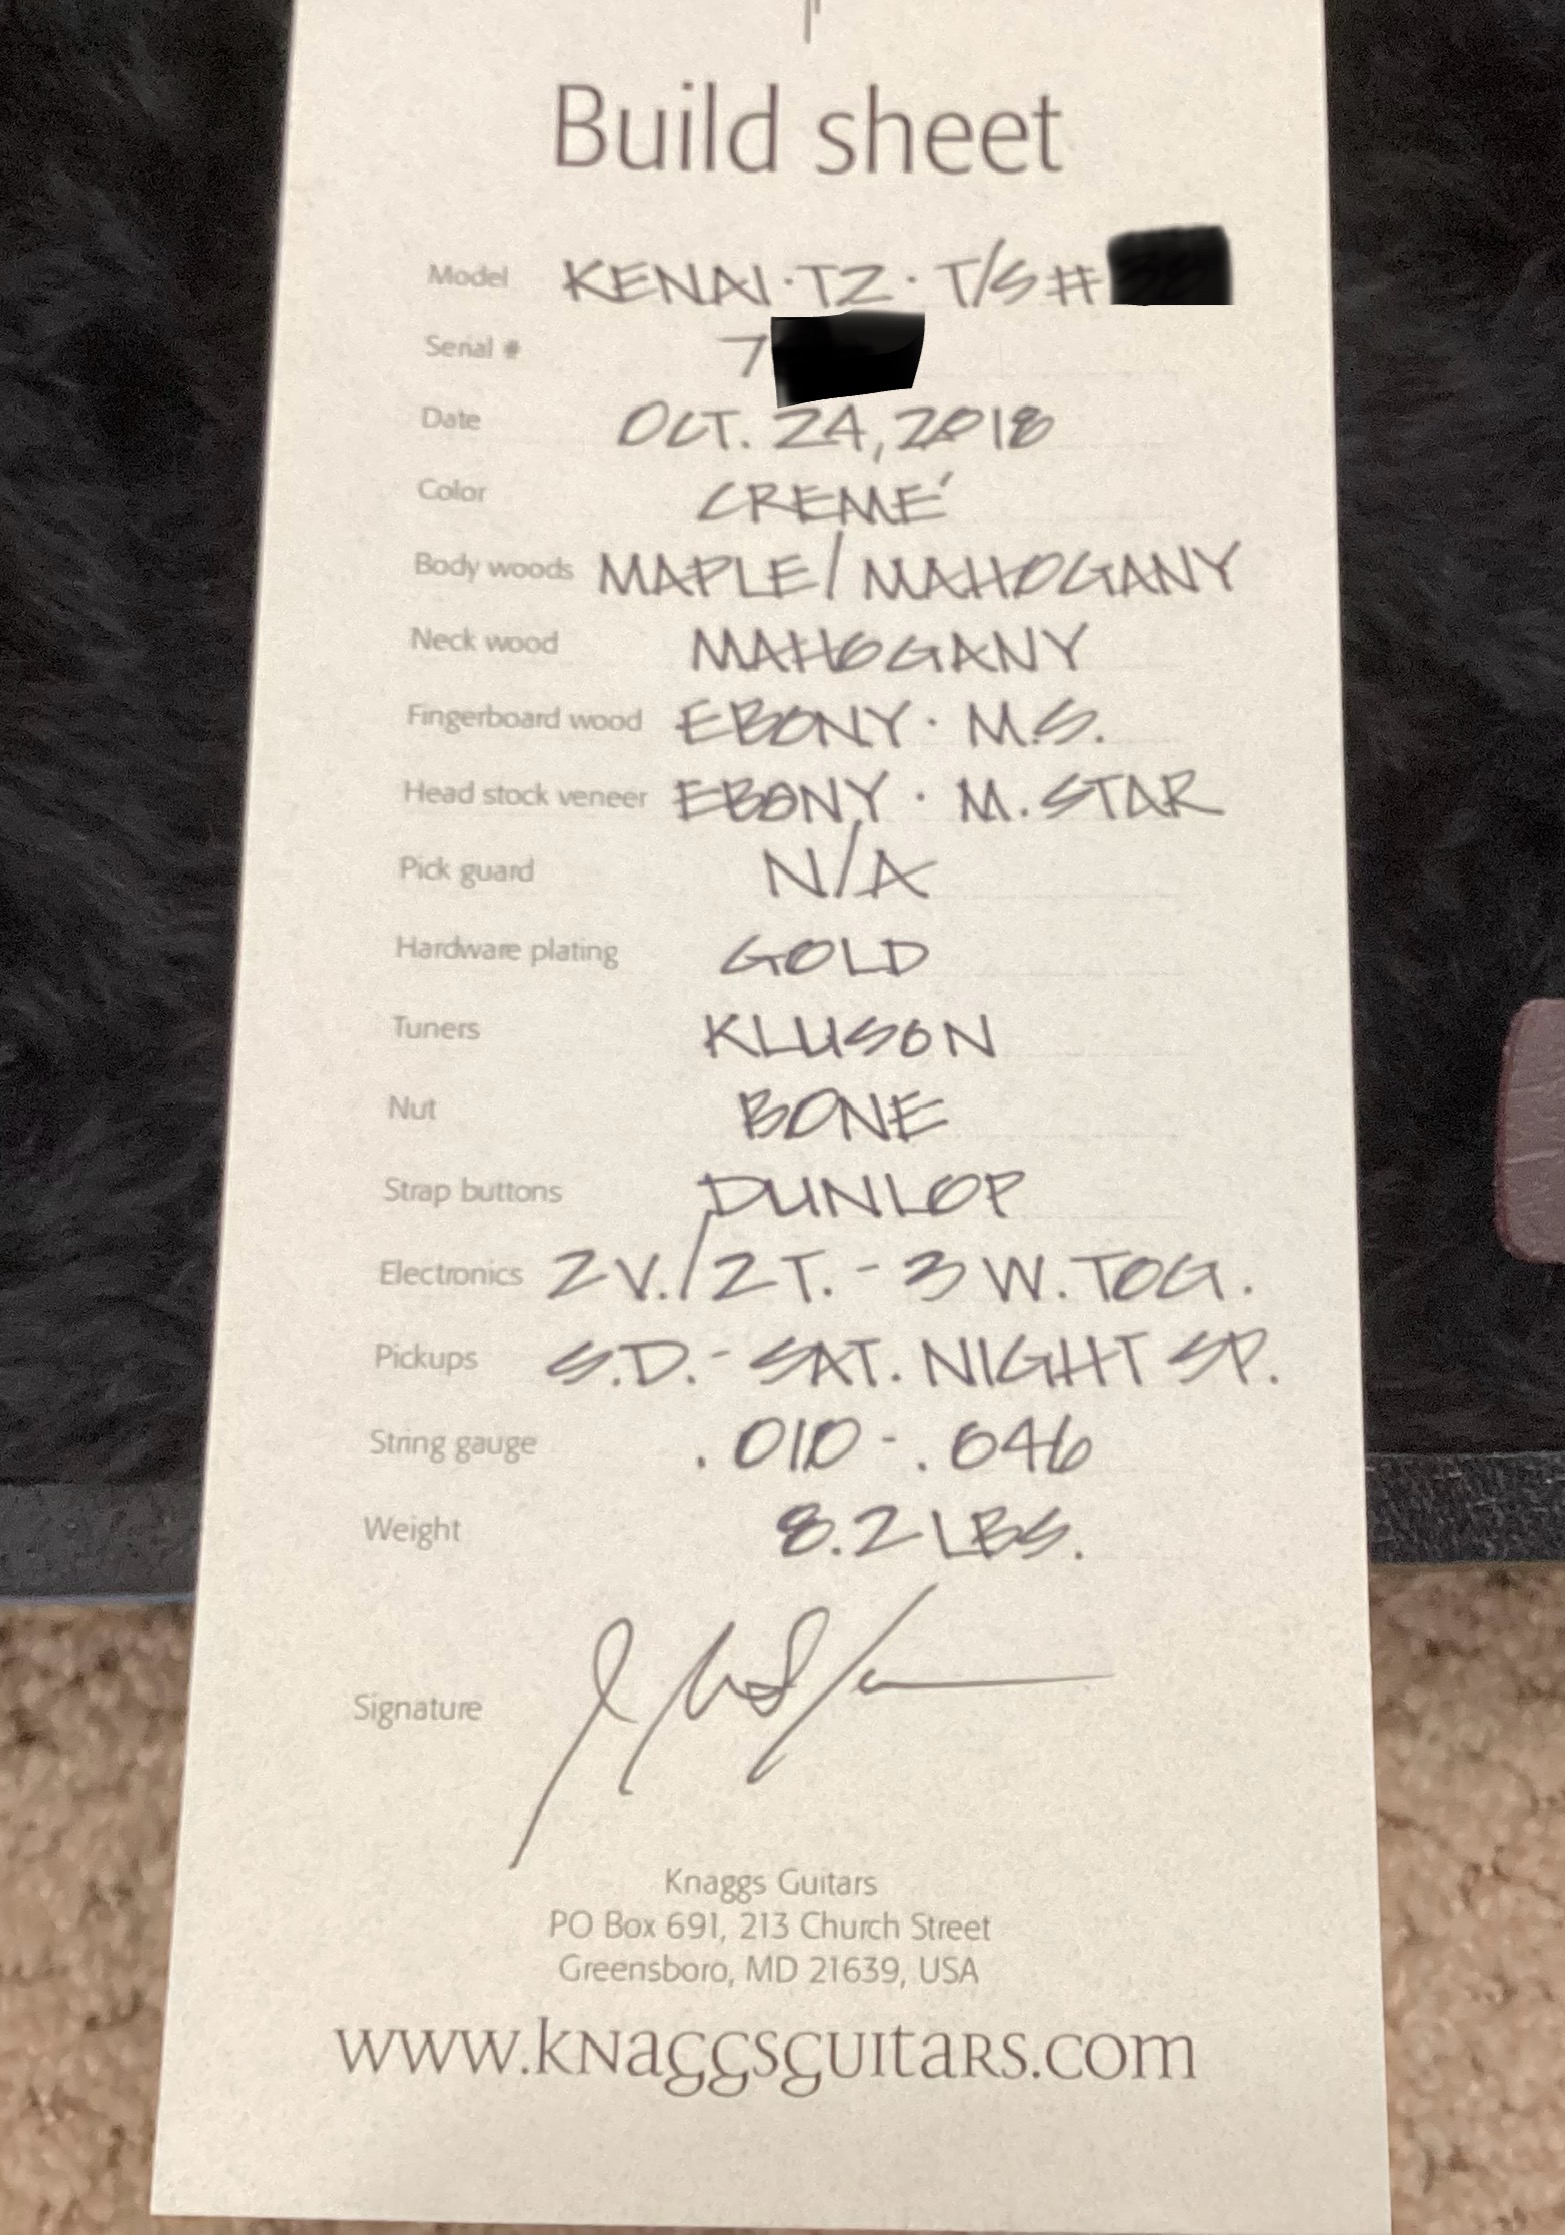 Build sheet
Model KENAI · TZ · T/S #
Serial # 7
Date OCT. 24, 2018
Color CREMÉ
Body woods MAPLE / MAHOGANY
Neck wood MAHOGANY
Fingerboard wood EBONY · M.S.
Head stock veneer EBONY · M. STAR
Pick guard N/A
Hardware plating GOLD
Tuners KLUSON
Nut BONE
Strap buttons DUNLOP
Electronics 2 V. / 2 T. - 3 W. TOG.
Pickups S.D. - SAT. NIGHT SP.
String gauge .010 - .046
Weight 8.2 LBS.
Signature
Knaggs Guitars
PO Box 691, 213 Church Street
Greensboro, MD 21639, USA
www.knaggsguitars.com